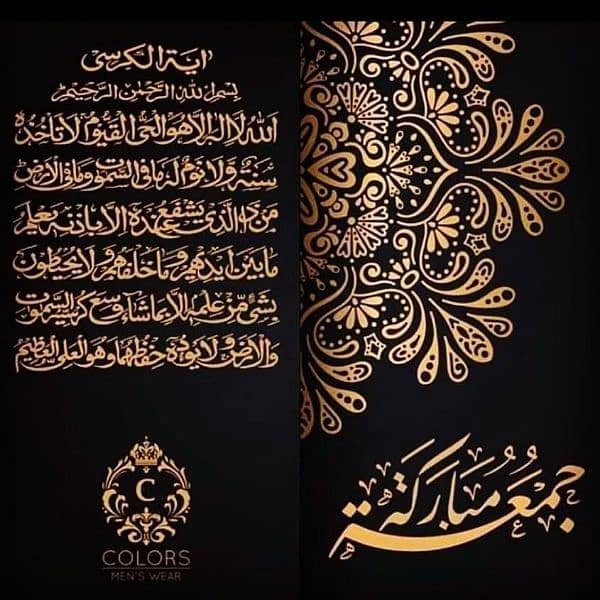 آية الكرسي
بسم الله الرحمن الرحيم
الله لا إله إلا هو الحي القيوم لا تأخذه
سنة ولا نوم له ما في السموات وما في الأرض
من ذا الذي يشفع عنده إلا بإذنه يعلم
ما بين أيديهم وما خلفهم ولا يحيطون
بشيء من علمه إلا بما شاء وسع كرسيه السموات
والأرض ولا يؤده حفظهما وهو العلي العظيم
C
COLORS
MEN'S WEAR
جمعة مباركة